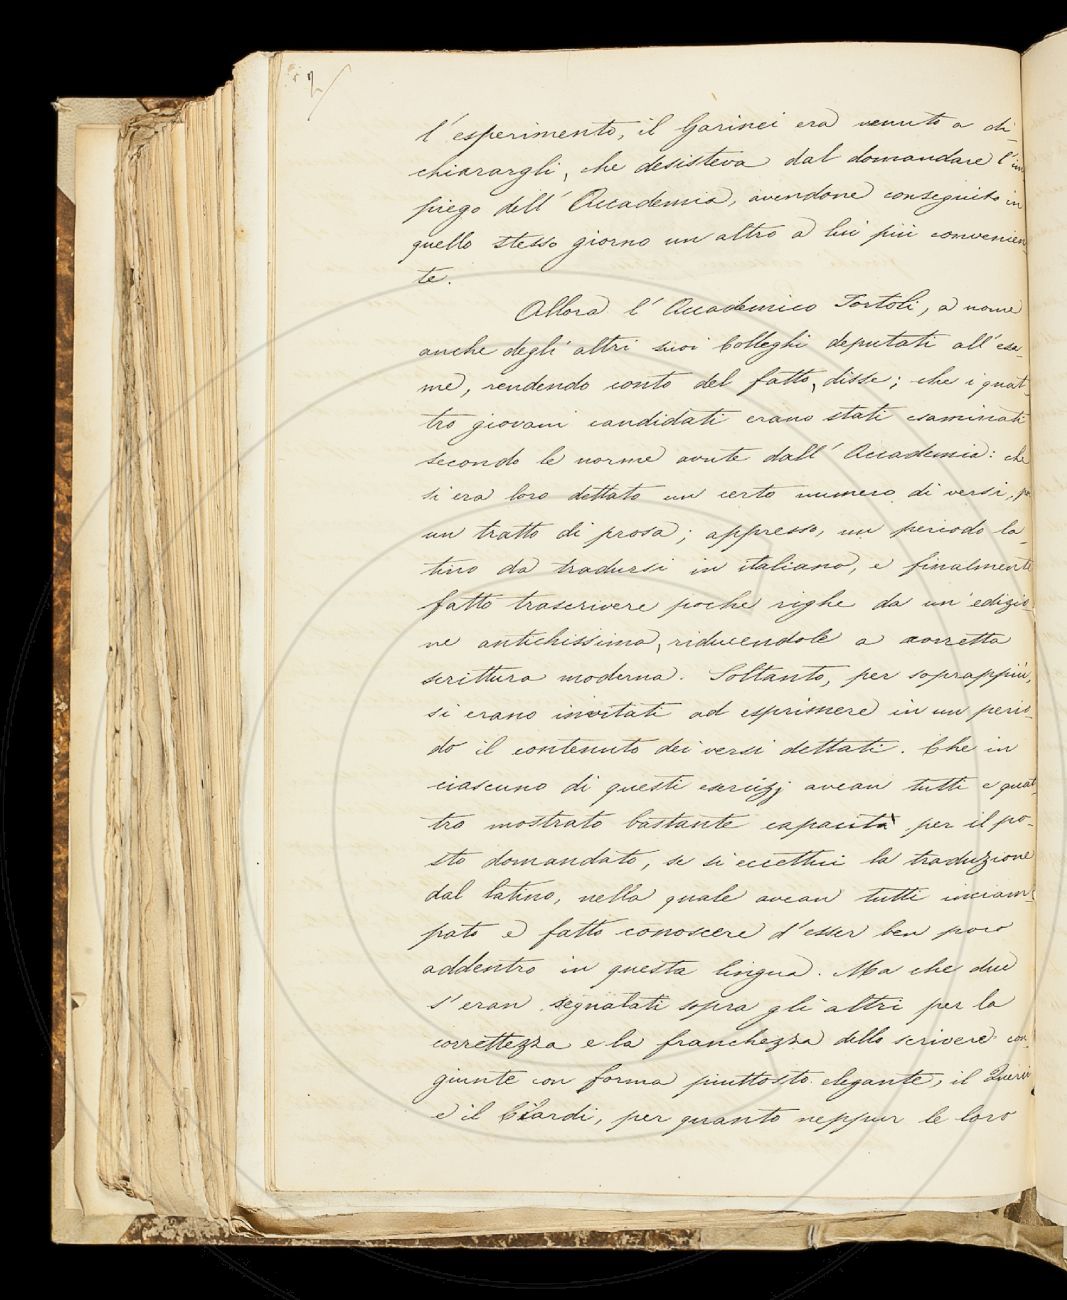 2
l'esperimento, il Garinei era venuto a di-
chiarargli, che desisteva dal domandare l'im
piego dell'Accademia, avendone conseguito in
quello stesso giorno un altro a lui più convenien-
te.
Allora l'Accademico Tortoli, a nome
anche degli altri suoi Colleghi deputati all'esa-
me, rendendo conto del fatto, disse; che i quat-
tro giovani candidati erano stati esaminati
secondo le norme avute dall'Accademia: che
si era loro dettato un certo numero di versi, poi
un tratto di prosa; appresso, un periodo la-
tino da tradursi in italiano, e finalmente
fatto trascrivere poche righe da un'edizio-
ne antichissima, riducendole a corretta
scrittura moderna. Soltanto, per soprappiù,
si erano invitati ad esprimere in un perio-
do il contenuto dei versi dettati. Che in
ciascuno di questi esercizj avean tutti e quat-
tro mostrato bastante capacità per il po-
sto domandato, se si eccettui la traduzione
dal latino, nella quale avean tutti inciam-
pato e fatto conoscere d'esser ben poco
addentro in questa lingua. Ma che due
s'eran segnalati sopra gli altri per la
correttezza e la franchezza dello scrivere con-
giunte con forma piuttosto elegante, il
e il Ciardi, per quanto neppur le loro